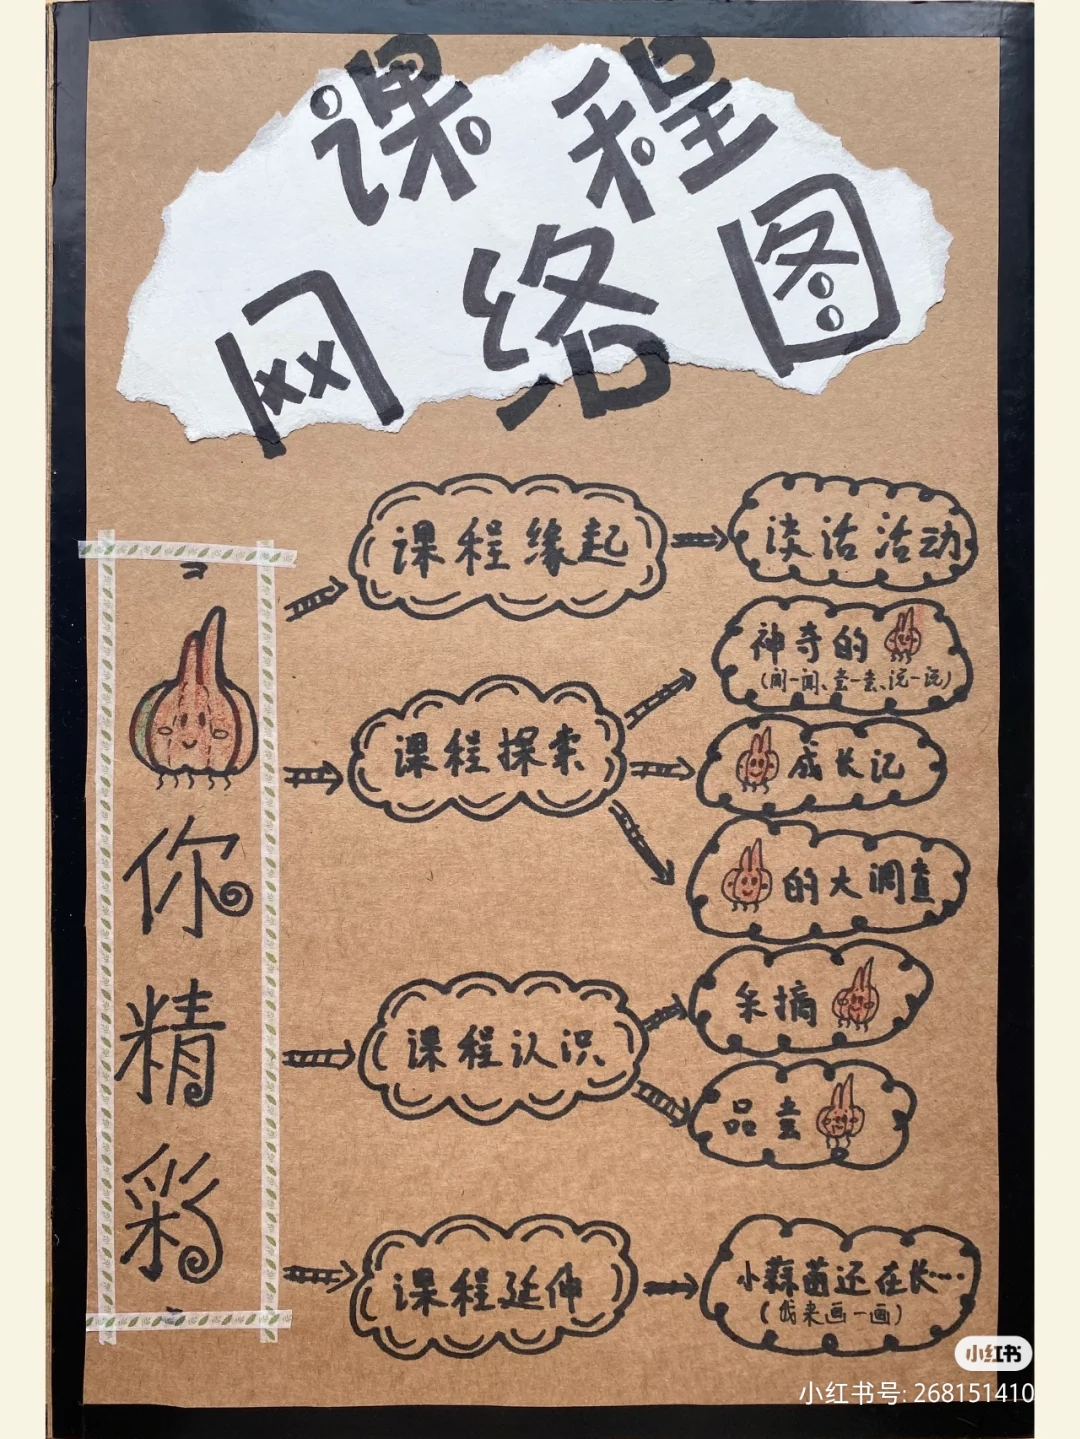 课程
网络图
你精彩
课程缘起
谈话活动
课程探索
神奇的
(闻一闻、尝一尝、说一说)
成长记
的大调查
课程认识
采摘
品尝
课程延伸
小蒜苗还在长…
(我来画一画)
小红书
小红书号: 268151410